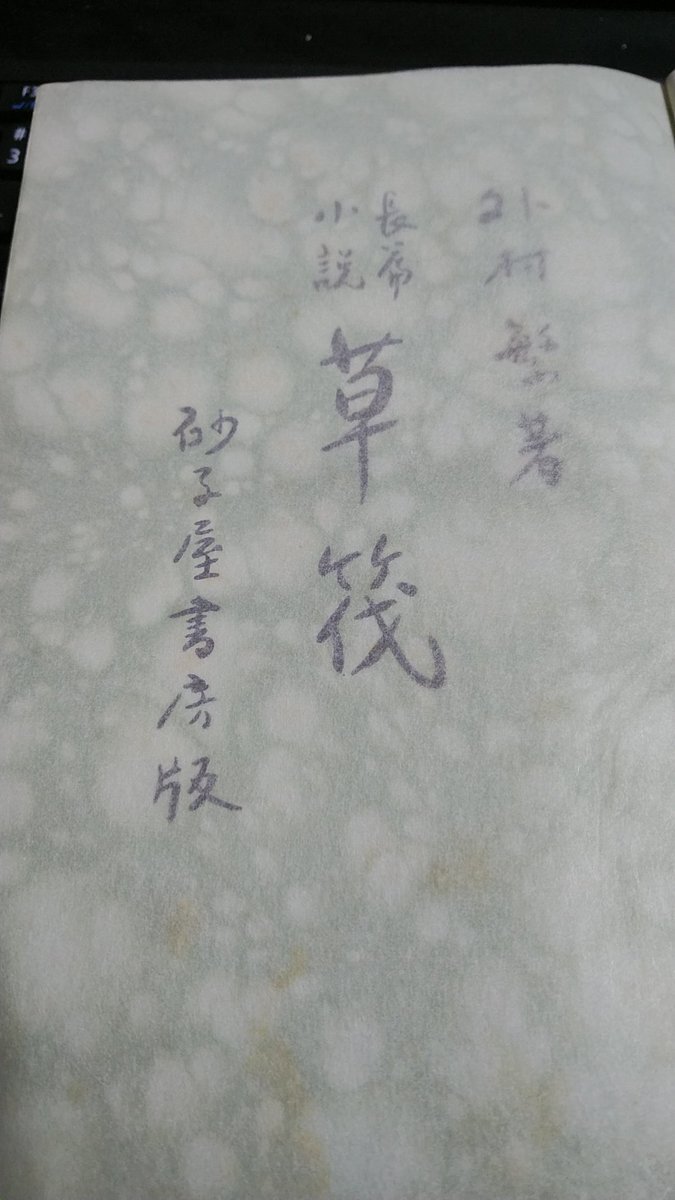 外村繁著
長篇
小説
草筏
砂子屋書房版
#
3